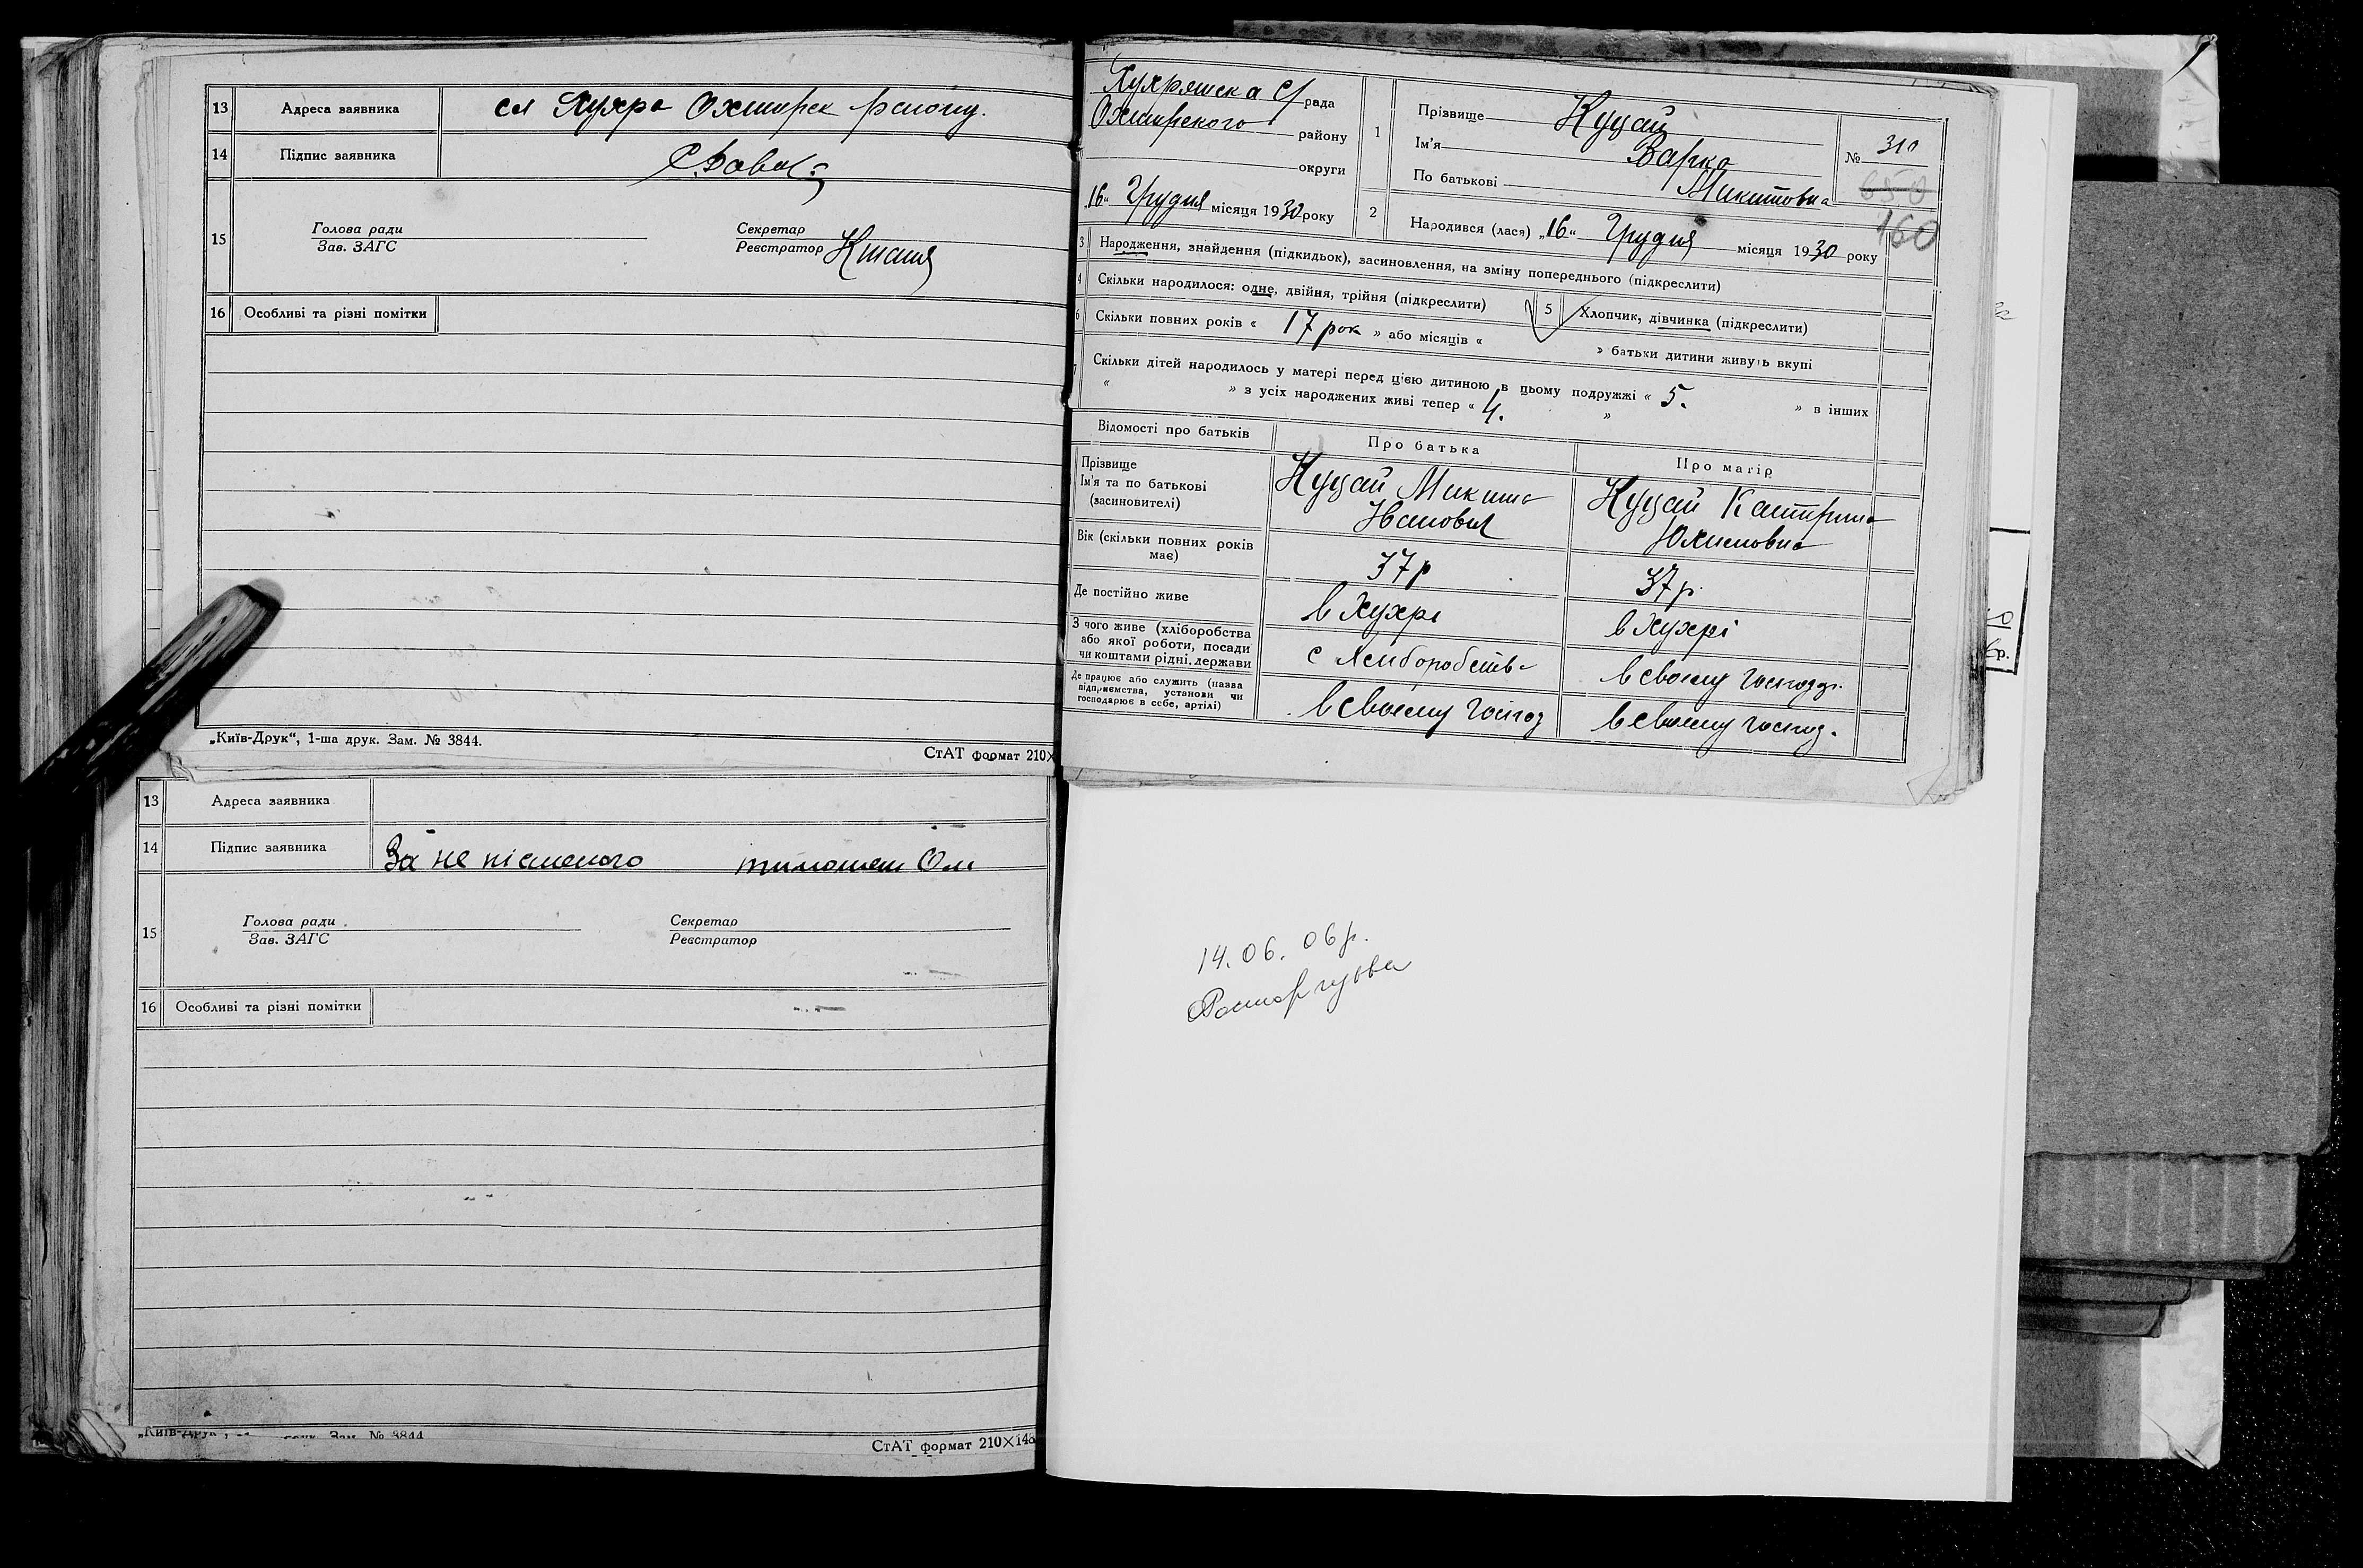 13 Адреса заявника сл Хухра Охтирск району.
14 Підпис заявника
15 Голова ради Секретар
Зав. ЗАГС Реєстратор
16 Особливі та різні помітки
„Київ-Друк“, 1-ша друк. Зам. № 3844.
СтАТ формат 210×
13 Адреса заявника
14 Підпис заявника За не письмского
15 Голова ради Секретар
Зав. ЗАГС Реєстратор
16 Особливі та різні помітки
Зам. № 3844
СтАТ формат 210×148
Хухрянска с/рада
Охтирского району
округи
„16“ Грудня місяця 1930 року
1 Прізвище Куцай
Ім'я Варка
По батькові Микитовна
№ 310
650
160
2 Народився (лася) „16“ Грудня місяця 1930 року
3 Народження, знайдення (підкидьок), засиновлення, на зміну попереднього (підкреслити)
4 Скільки народилося: одне, двійня, трійня (підкреслити) 5 Хлопчик, дівчинка (підкреслити)
6 Скільки повних років « 17 рок » або місяців « » батьки дитини живуть вкупі
7 Скільки дітей народилось у матері перед цією дитиною в цьому подружжі « 5. » в інших
« » з усіх народжених живі тепер « 4. »
Відомості про батьків Про батька Про матір
Прізвище
Ім'я та по батькові
(засиновителі)
Куцай Микита
Іванович
Куцай Катрина
Юхимовна
Вік (скільки повних років
має)
37 р
37 р.
Де постійно живе в Хухрі в Хухрі
З чого живе (хліборобства
або якої роботи, посади
чи коштами рідні, держави
с хліборобств
в своєму господ.
Де працює або служить (назва
підприємства, установи чи
господарює в себе, артілі)
в своєму господ
в своєму господ.
14.06.06р.